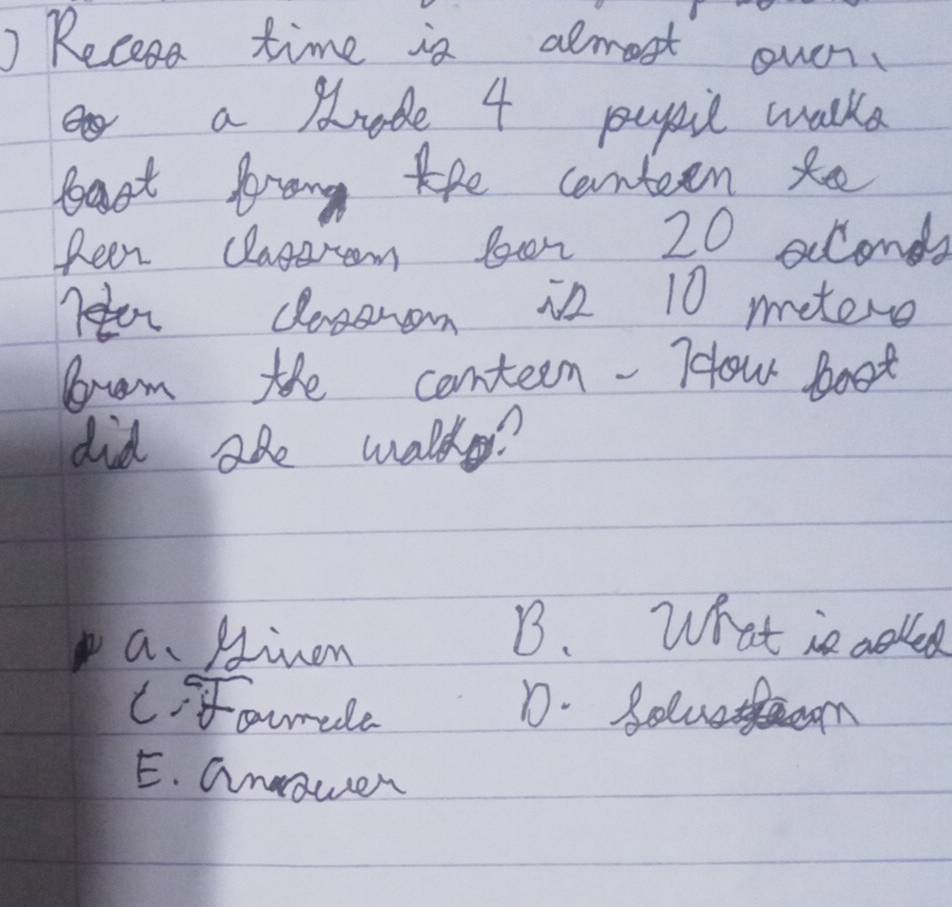 ) Recess time is almost over.
so a Grade 4 pupil walks
fast from the canteen to
her classrom for 20 seconds
Her classrom is 10 meters
from the canteen - How fast
did she walk?
a. Given B. What is asked
C. Formula D. Solustion
E. answer